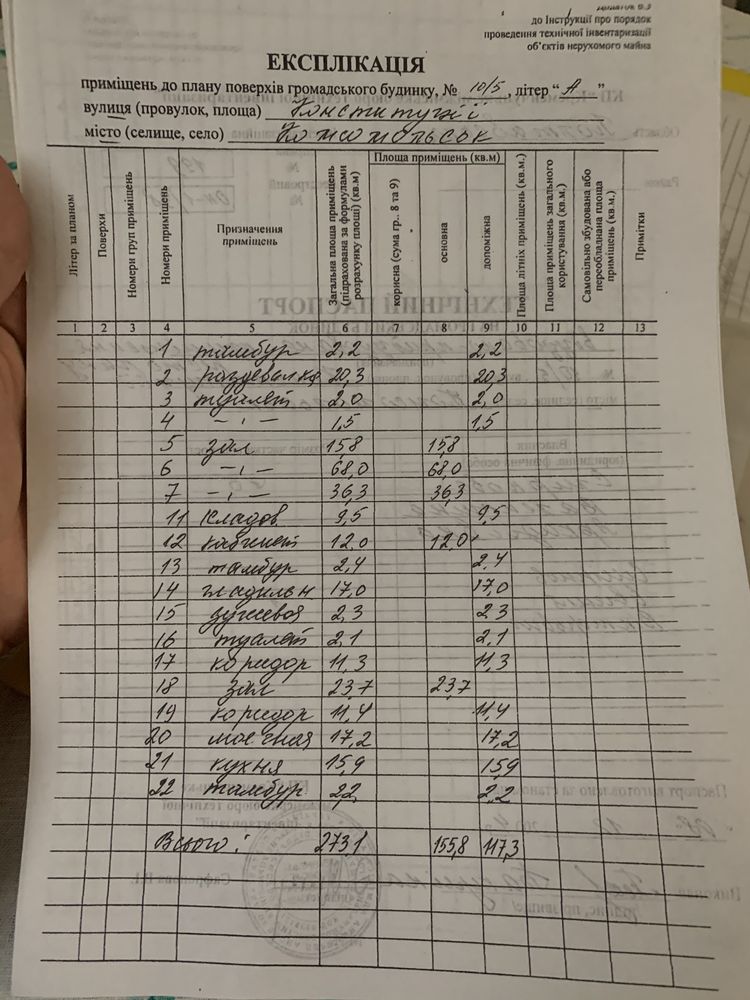 до Інструкції про порядок
проведення технічної інвентаризації
об'єктів нерухомого майна
ЕКСПЛІКАЦІЯ
приміщень до плану поверхів громадського будинку, № 10/5, літер "А"
вулиця (провулок, площа) Конституції
місто (селище, село) Комсомольськ
Літер за планом
Поверхи
Номери груп приміщень
Номери приміщень
Призначення приміщень
Загальна площа приміщень (підрахована за формулами розрахунку площі) (кв.м)
Площа приміщень (кв.м)
корисна (сума гр.. 8 та 9)
основна
допоміжна
Площа літніх приміщень (кв.м.)
Площа приміщень загального користування (кв.м.)
Самовільно збудована або переобладнана площа приміщень (кв.м.)
Примітки
1 2 3 4 5 6 7 8 9 10 11 12 13
1 тамбур 2,2 2,2
2 раздевалка 20,3 20,3
3 туалет 2,0 2,0
4 –,– 1,5 1,5
5 зал 15,8 15,8
6 –,– 68,0 68,0
7 –,– 36,3 36,3
11 кладов 9,5 9,5
12 кабинет 12,0 12,0
13 тамбур 2,4 2,4
14 гладильн 17,0 17,0
15 душевая 2,3 2,3
16 туалет 2,1 2,1
17 коридор 11,3 11,3
18 зал 23,7 23,7
19 коридор 11,4 11,4
20 моечная 17,2 17,2
21 кухня 15,9 15,9
22 тамбур 2,2 2,2
Всього: 273,1 155,8 117,3